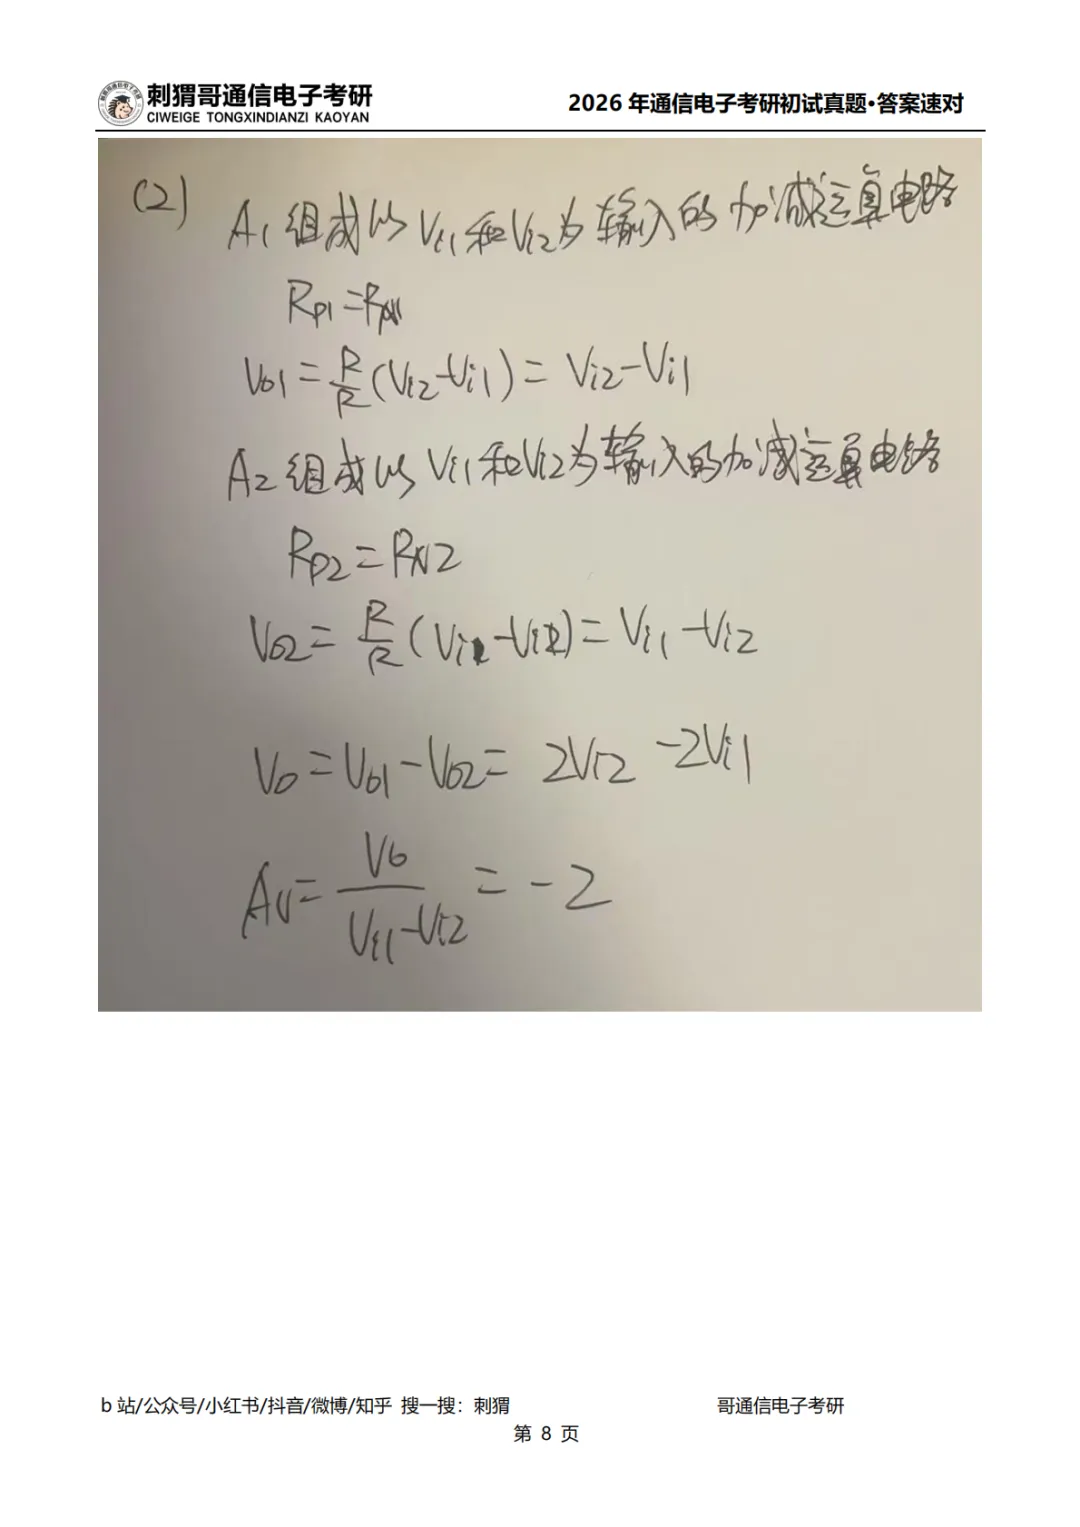 刺猬哥通信电子考研
CIWEIGE TONGXINDIANZI KAOYAN
2026 年通信电子考研初试真题·答案速对
(2)
A1 组成以 Vi1 和 Vi2 为输入的加减运算电路
RP1 = RN1
Vo1 = R/R (Vi2 - Vi1) = Vi2 - Vi1
A2 组成以 Vi1 和 Vi2 为输入的加减运算电路
RP2 = RN2
Vo2 = R/R (Vi1 - Vi2) = Vi1 - Vi2
Vo = Vo1 - Vo2 = 2Vi2 - 2Vi1
Av = Vo/(Vi1 - Vi2) = -2
b 站/公众号/小红书/抖音/微博/知乎 搜一搜：刺猬
哥通信电子考研
第 8 页